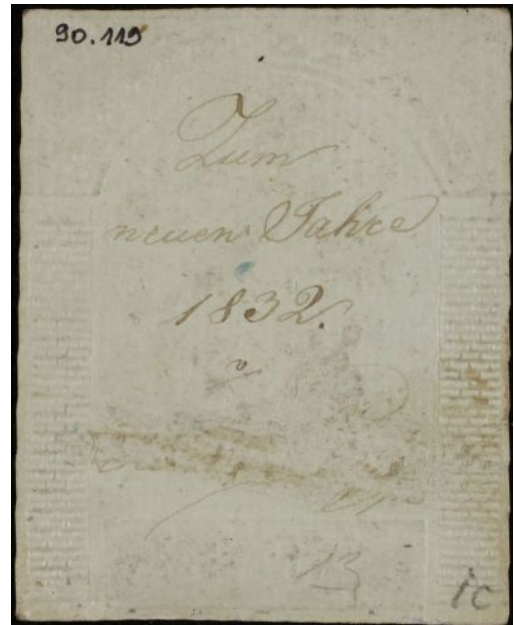 90.119
Zum
neuen Jahre
1832.
v
13
1C